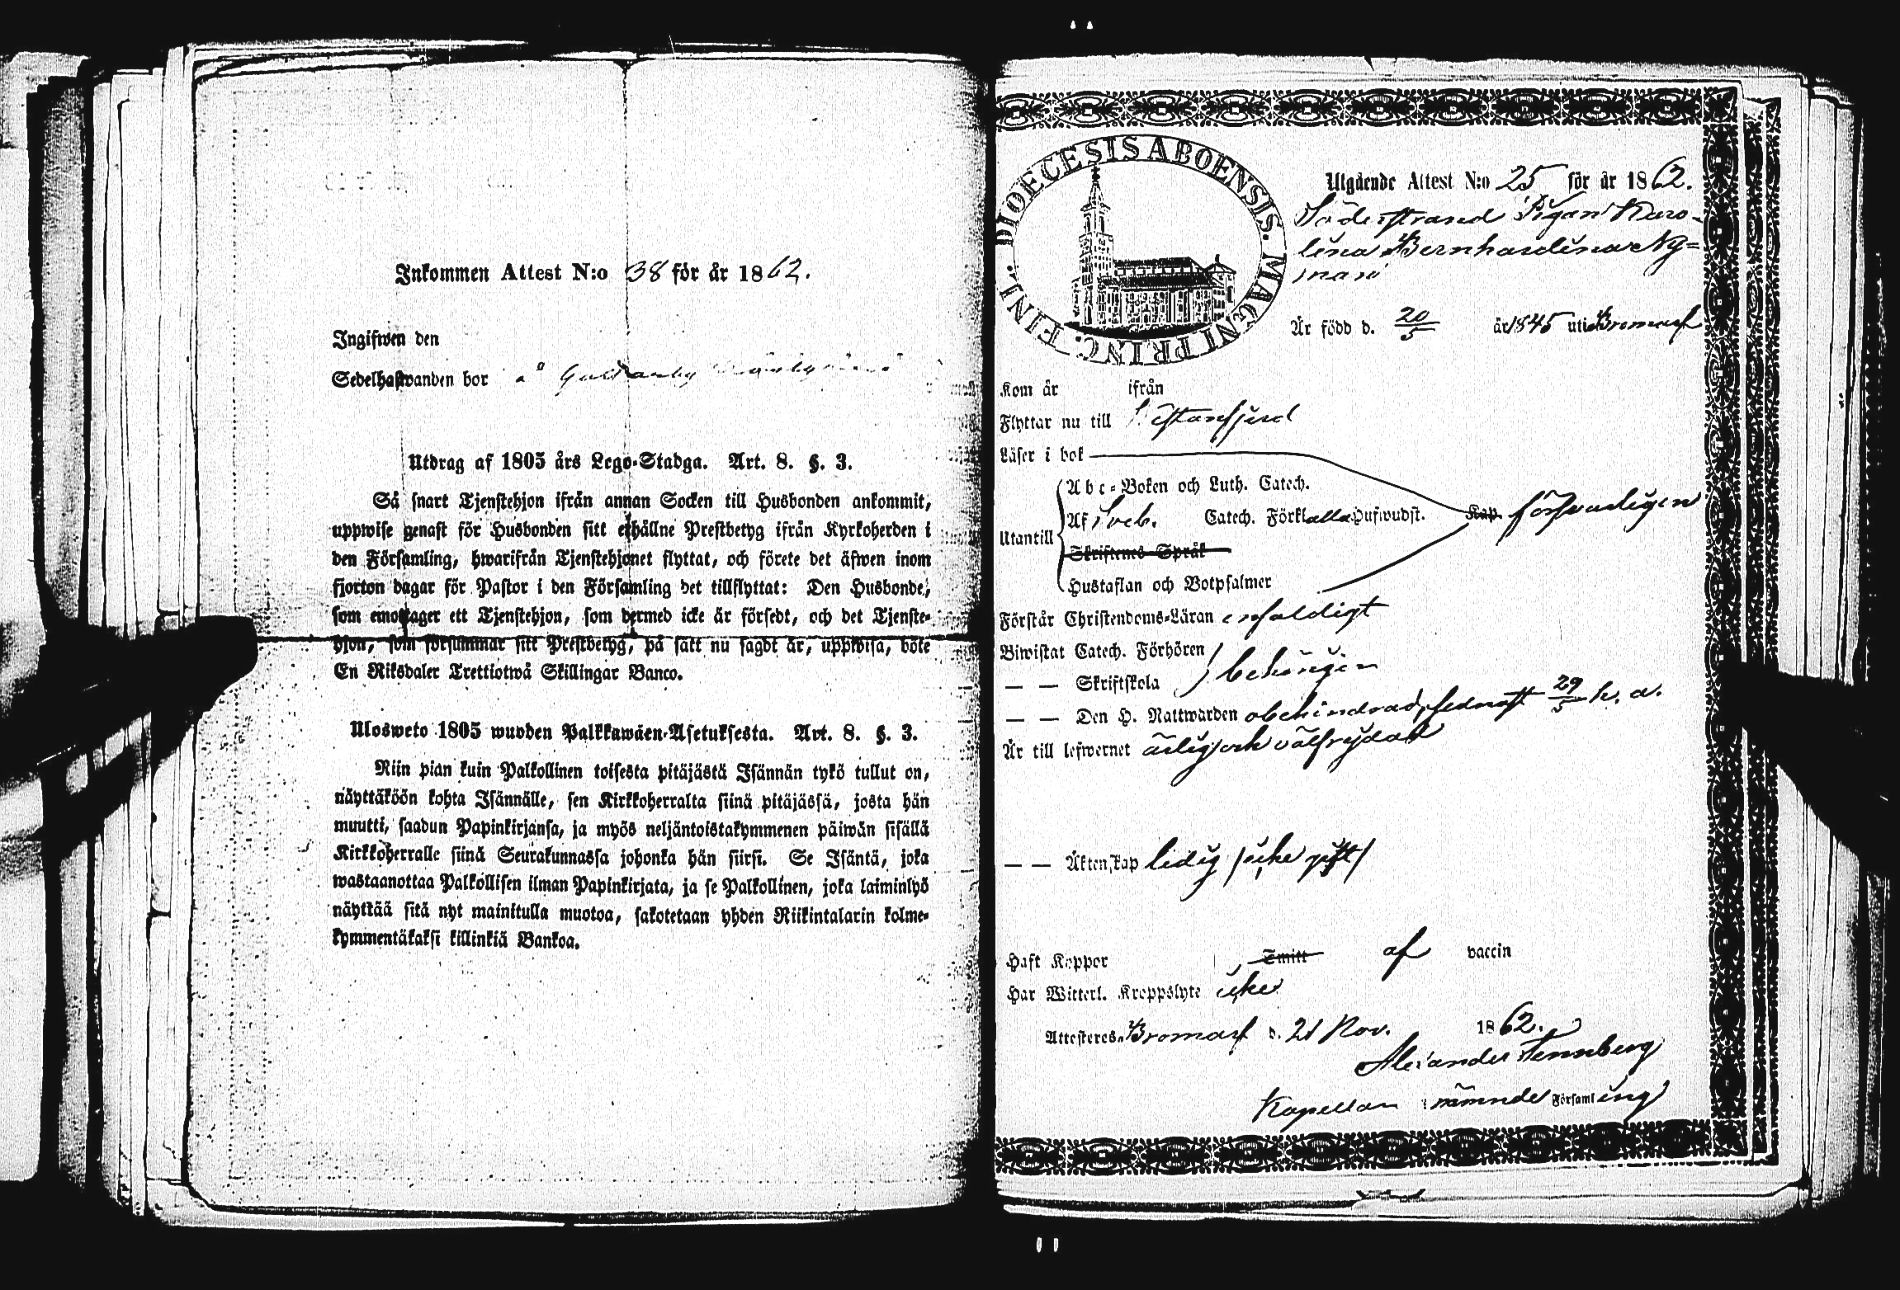 Inkommen Attest N:o 38 för år 1862.
Ingifwen den
Sedelhafwanden bor å
Utdrag af 1805 års Lego-Stadga. Art. 8. §. 3.
Så snart Tjenstehjon ifrån annan Socken till Husbonden ankommit,
uppwise genast för Husbonden sitt erhållne Prestbetyg ifrån Kyrkoherden i
den Församling, hwarifrån Tjenstehjonet flyttat, och förete det äfwen inom
fjorton dagar för Pastor i den Församling det tillflyttat: Den Husbonde,
som emottager ett Tjenstehjon, som dermed icke är försedt, och det Tjenste-
hjon, som försummar sitt Prestbetyg, på sätt nu sagdt är, uppwisa, böte
En Riksdaler Trettiotwå Skillingar Banco.
Ulosweto 1805 wuoden Palkkawäen-Asetuksesta. Art. 8. §. 3.
Niin pian kuin Palkollinen toisesta pitäjästä Isännän tykö tullut on,
näyttäköön kohta Isännälle, sen Kirkkoherralta siinä pitäjässä, josta hän
muutti, saadun Papinkirjansa, ja myös neljäntoistakymmenen päiwän sisällä
Kirkkoherralle siinä Seurakunnassa johonka hän siirsi. Se Isäntä, joka
wastaanottaa Palkollisen ilman Papinkirjata, ja se Palkollinen, joka laiminlyö
näyttää sitä nyt mainitulla muotoa, sakotetaan yhden Riikintalarin kolme-
kymmentäkaksi killinkiä Bankoa.
DIOECESIS ABOENSIS. MAGNI PRINC. FINL.
Utgående Attest N:o 25 för år 1862.
Söderstrand Pigan Karo-
lina Bernhardina Ny=
man
Är född d. 20/5 år 1845 uti Bromarf
Kom år ifrån
Flyttar nu till Vestanfjerd
Läser i bok
Abc-Boken och Luth. Catech.
Utantill Af Sveb. Catech. Förkl. alla Hufwudst. Kap. försvarligen
Skriftenes Språk
Hustaflan och Botpsalmer
Förstår Christendoms-Läran enfaldigt
Biwistat Catech. Förhören
— — Skriftskola behörigen
— — Den H. Nattwarden obehindrad, sednast 29/5 h. a.
Är till lefwernet ärlig och välfrejdad
— — Äktenskap ledig /icke gift/
Haft Koppor Smitt af vaccin
Har Witterl. Kroppslyte icke
Attesteras, Bromarf d. 21 Nov. 1862.
Alexander Tennberg
Kapellan i nämnde Församling